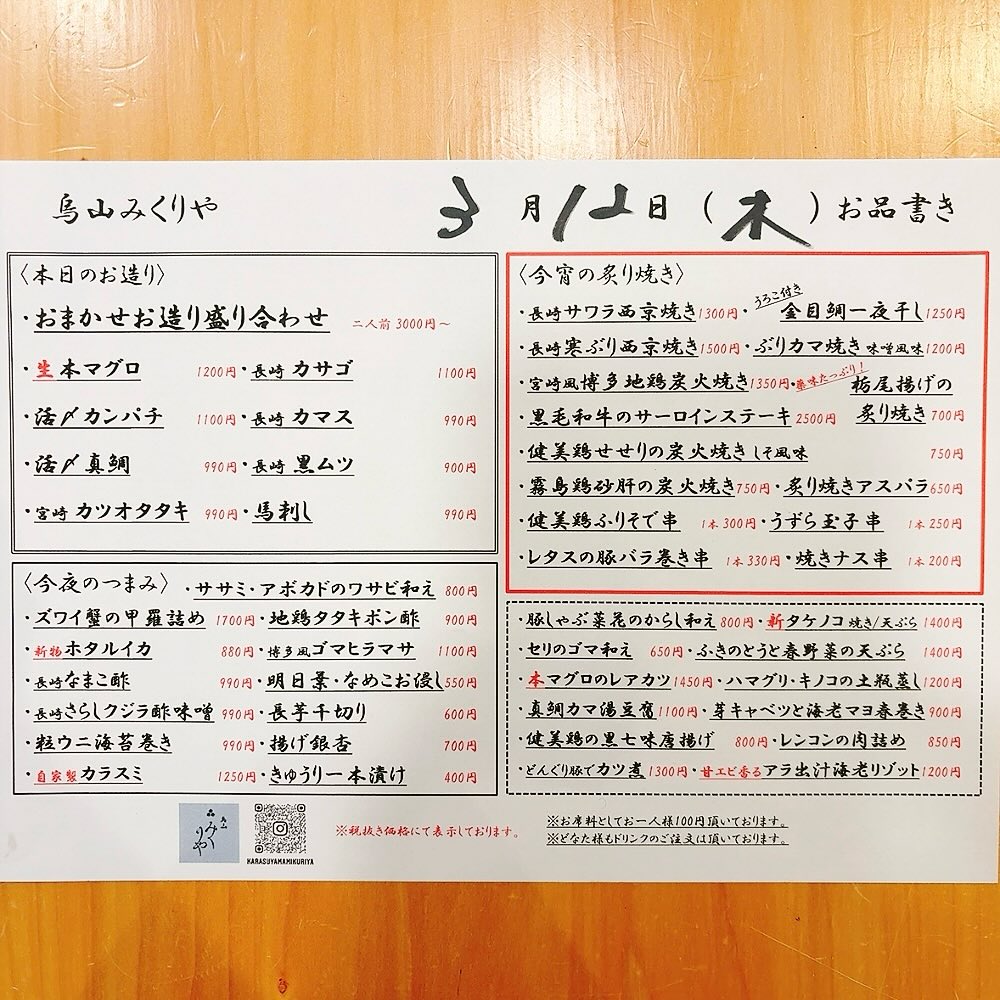 烏山みくりや 3月12日(木)お品書き
〈本日のお造り〉
・おまかせお造り盛り合わせ 二人前 3000円～
・生本マグロ 1200円・長崎 カサゴ 1100円
・活〆カンパチ 1100円・長崎 カマス 990円
・活〆真鯛 990円・長崎 黒ムツ 900円
・宮崎 カツオタタキ 990円・馬刺し 990円
〈今夜のつまみ〉・ササミ・アボカドのワサビ和え 800円
・ズワイ蟹の甲羅詰め 1700円・地鶏タタキポン酢 900円
・新物ホタルイカ 880円・博多風ゴマヒラマサ 1100円
・長崎なまこ酢 990円・明日葉・なめこお浸し550円
・長崎さらしクジラ酢味噌 990円・長芋千切り 600円
・粒ウニ海苔巻き 990円・揚げ銀杏 700円
・自家製カラスミ 1250円・きゅうり一本漬け 400円
〈今宵の炙り焼き〉
・長崎サワラ西京焼き1300円・うろこ付き金目鯛一夜干し1250円
・長崎寒ぶり西京焼き1500円・ぶりカマ焼き 味噌風味1200円
・宮崎風博多地鶏炭火焼き1350円・薬味たっぷり!栃尾揚げの
・黒毛和牛のサーロインステーキ 2500円 炙り焼き 700円
・健美鶏せせりの炭火焼き しそ風味 750円
・霧島鶏砂肝の炭火焼き750円・炙り焼きアスパラ650円
・健美鶏ふりそで串 1本300円・うずら玉子串 1本250円
・レタスの豚バラ巻き串 1本330円・焼きナス串 1本200円
・豚しゃぶ菜花のからし和え 800円・新タケノコ 焼き/天ぷら 1400円
・セリのゴマ和え 650円・ふきのとうと春野菜の天ぷら 1400円
・本マグロのレアカツ1450円・ハマグリ・キノコの土瓶蒸し1200円
・真鯛カマ湯豆腐1100円・芽キャベツと海老マヨ春巻き900円
・健美鶏の黒七味唐揚げ 800円・レンコンの肉詰め 850円
・どんぐり豚でカツ煮 1300円・甘エビ香るアラ出汁海老リゾット1200円
烏山みくりや
KARASUYAMAMIKURIYA
※税抜き価格にて表示しております。
※お席料としてお一人様100円頂いております。
※どなた様もドリンクのご注文は頂いております。